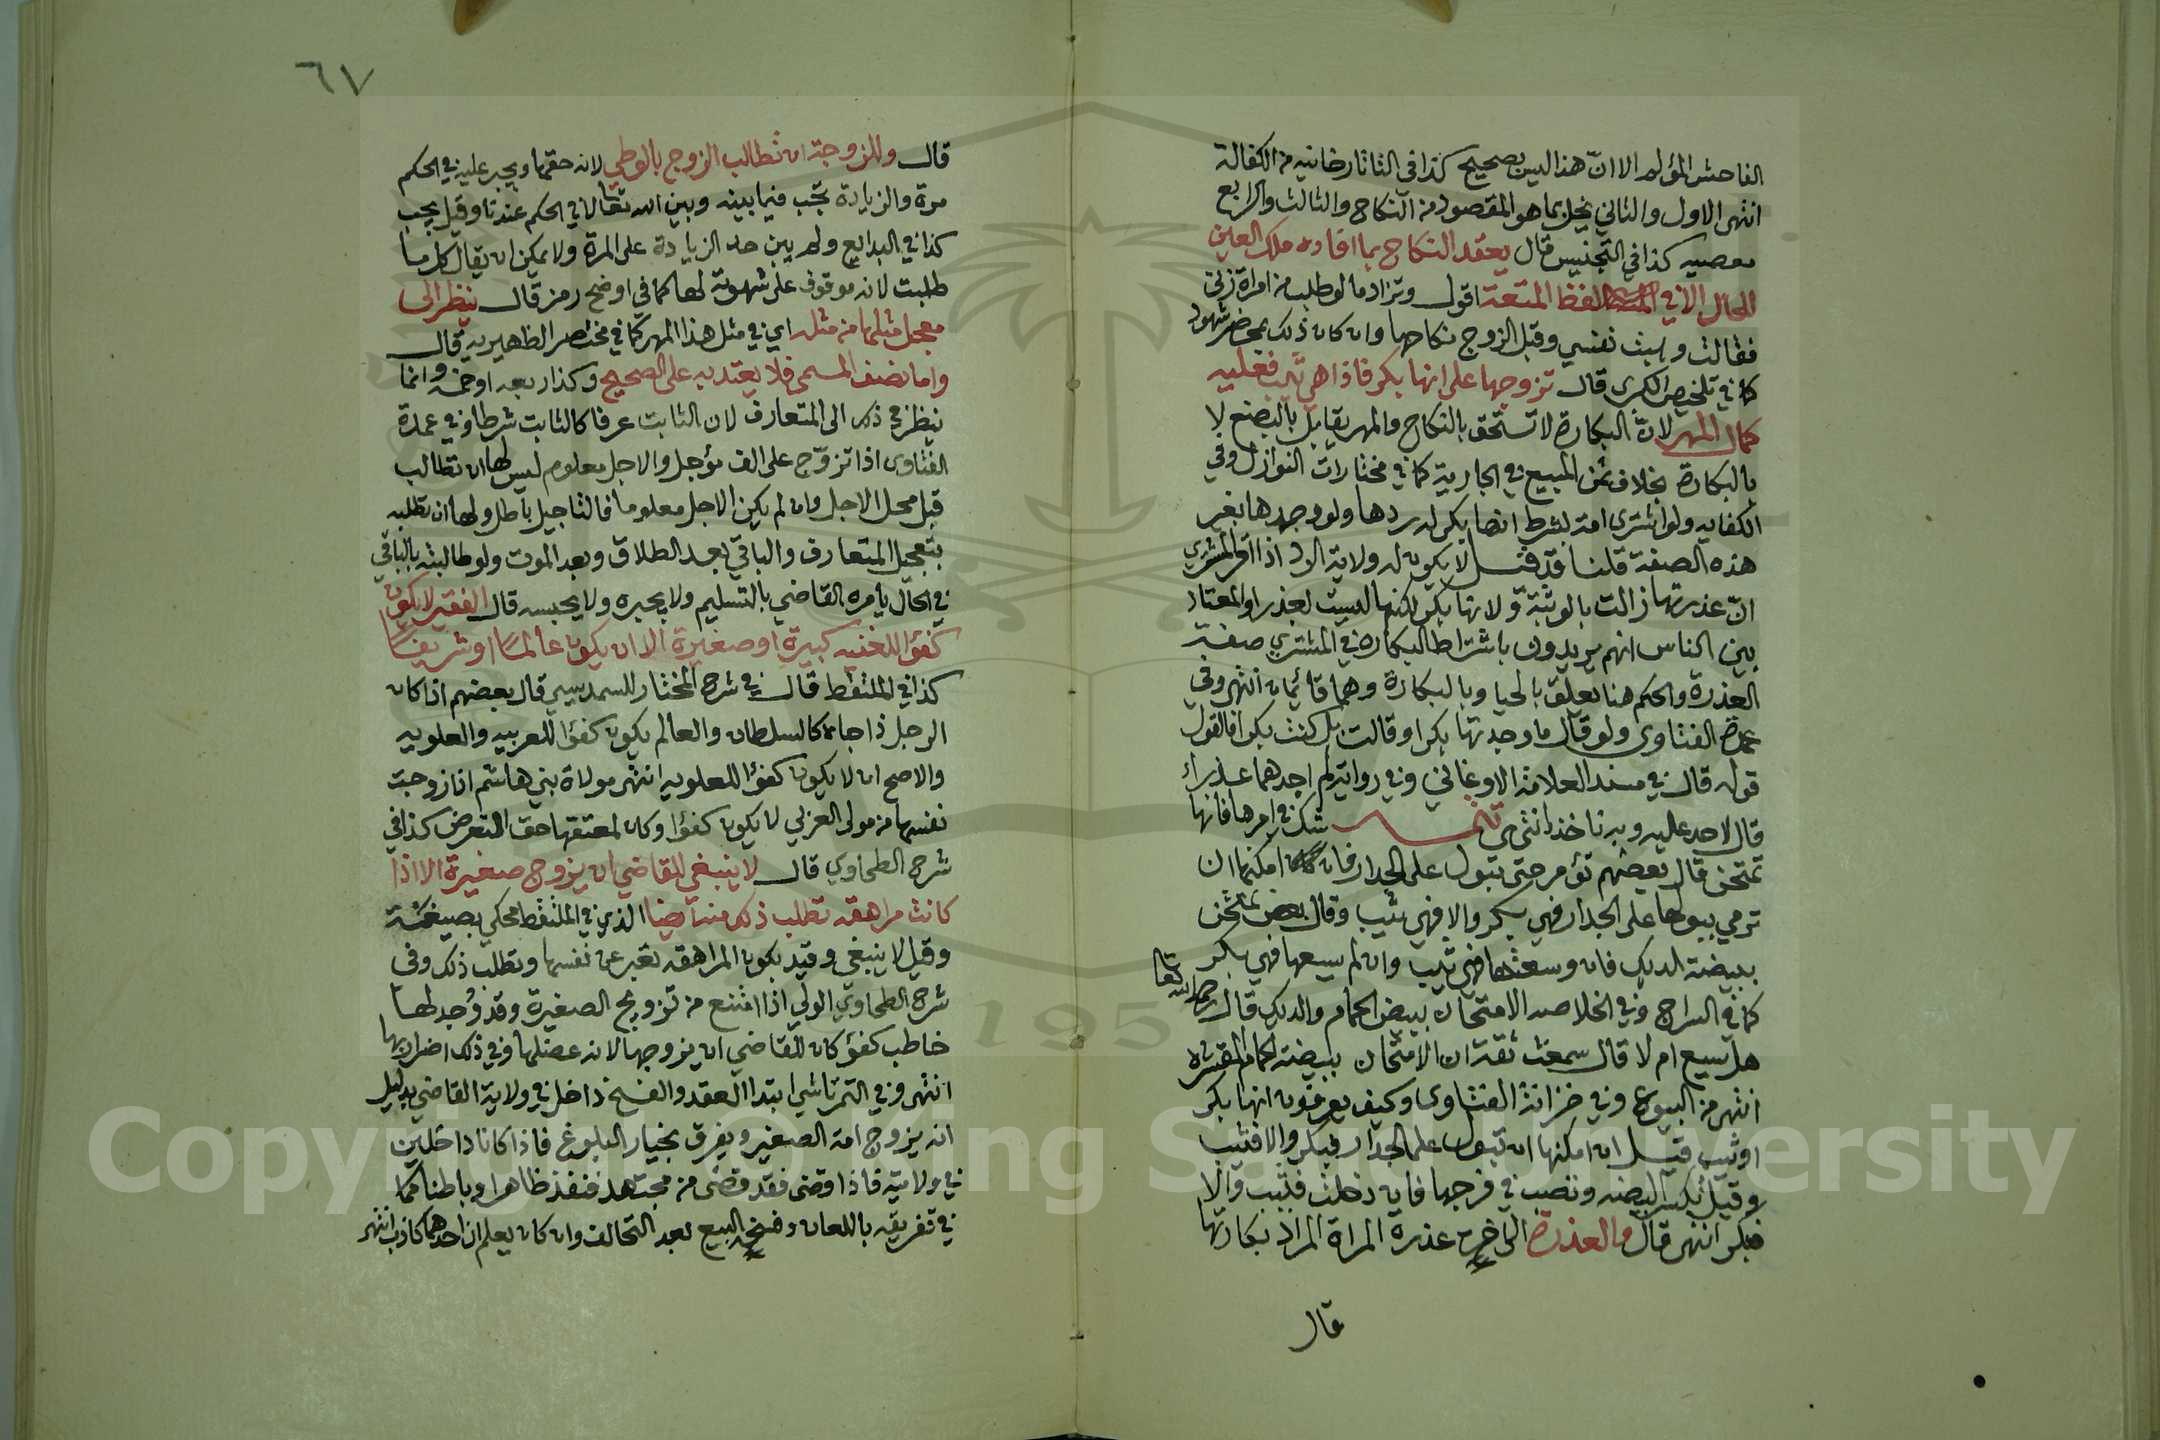 الفاحش المؤلم الا انّ هذا ليس بصحيح كذا في التاتارخانيه من الكفالة
انتهى الاول والثاني يخل بما هو المقصود من النكاح والثالث والرابع
معصيه كذا في التجنيس قال يعقد النكاح بما افاد ملك العين
للحال الا في لفظ المتعة اقول وتزاد ما لو طلب من امراة زنى
فقالت وهبت نفسي وقبل الزوج نكاحها وان كان ذلك بمحضر شهود
كما في تلخيص الكبرى قال تزوجها على انها بكر فاذا هي ثيب فعليه
كمال المهر لانّ البكارة لا تستحق بالنكاح والمهر يقابل بالبضع لا
بالبكارة بخلاف ثمن المبيع في الجارية كما في مختارات النوازل وفي
الكفايه ولو اشترى امة بشرط انها بكر له ردها ولو وجدها بغير
هذه الصفة قلنا قد قيل لا يكون له ولاية الرد اذا اقر المشتري
انّ عذرتها زالت بالوثبة ولانها بكر لكنها ليست بعذرا والمعتاد
بين الناس انهم يريدون باشتراط البكاره في المشترى صفة
العذرة والحكم هنا تعلق بالحيا وبالبكارة وهما قائمان انتهى وفي
عمدة الفتاوى ولو قال ما وجدتها بكرا وقالت بل كنت بكرا فالقول
قوله قال في مسند العلامة الاوغاني وفي رواية لم اجدهما عذراء
قال لا حد عليه وبه ناخذ انتهى تتمه شك في امرها فانها
تمتحن قال بعضهم تؤمر حتى تبول على الجدار فان امكنها ان
ترمي ببولها على الجدار فهي بكر والا فهي ثيب وقال بعض تمتحن
ببيضة الديك فان وسعتها فهي ثيب وان لم يسعها فهي بكر
كما في السراج وفي الخلاصه الامتحان ببيض الحمام والديك قال رحمه الله تعا
هل تسيع ام لا قال سمعت ثقة ان الامتحان ببيضة الحمام المقشره
انتهى من البيوع وفي خزانة الفتاوى وكيف يعرفون انها بكر
او ثيب قيل ان امكنها ان تبول على الجدار فبكر والا فثيب
وقيل تكسر البيضه وتصب في فرجها فان دخلت فثيب والا
فبكر انتهى قال والعذرة الى اخره عذرة المراة المراد بكارتها
قال
٦٧
قال وللزوجة ان تطالب الزوج بالوطي لانه حقها ويجبر عليه في الحكم
مرة والزيادة تجب فيما بينه وبين الله تعالى لا في الحكم عندنا وقيل يجب
كذا في البدايع ولم يبين حد الزيادة على المرة ولا يمكن ان يقال كل ما
طلبت لانه موقوف على شهوة لها كما في اوضح رمز قال ينظر الى
معجل مثلها من مثله اي في مثل هذا المهر كما في مختصر الظهيريه قال
واما نصف المسمى فلا يعتد به على الصحيح وكذا ربعه او خمسه وانما
ينظر في ذلك الى المتعارف لان الثابت عرفا كالثابت شرطا وفي عمدة
الفتاوى اذا تزوّج على الف مؤجل والاجل معلوم ليس لها ان تطالب
قبل محل الاجل وان لم يكن الاجل معلوما فالتاجيل باطل ولها ان تطلبه
بتعجيل المتعارف والباقي بعد الطلاق وبعد الموت ولو طالبته بالباقي
في الحال يأمره القاضي بالتسليم ولا يجبره ولا يحبسه قال الفقير لا يكون
كفؤا للغنيه كبيرة او صغيرة الا ان يكون عالمًا او شريفًا
كذا في الملتقط قال في شرح المختار للسمديسي قال بعضهم اذا كان
الرجل ذا جاه كالسلطان والعالم يكون كفؤا للعربيه والعلويه
والاصح ان لا يكون كفؤا للعلويه انتهى مولاة بني هاشم اذا زوجت
نفسها من مولى العربي لا يكون كفؤا وكان لمعتقها حق التعرض كذا في
شرح الطحاوي قال لا ينبغي للقاضي ان يزوج صغيرة الا اذا
كانت مراهقه تطلب ذلك منه رضا الذي في الملتقط محكي بصيغة
وقيل لا ينبغي وقيد بكون المراهقه تعبر عن نفسها وتطلب ذلك وفي
شرح الطحاوي الولي اذا امتنع من تزويج الصغيرة وقد وُجد لها
خاطب كفؤ كان للقاضي ان يزوجها لانه عضلها وفي ذلك اضرار بها
انتهى وفي التمرتاشي ابتدا العقد والفسخ داخل في ولاية القاضي بدليل
انه يزوج امة الصغير ويفرق بخيار البلوغ فاذا كانا داخلين
في ولايته فاذا قضى فقد قضى من مجتهد فنفذ ظاهرا وباطنا كما
في تفريقه باللعان وفسخه البيع بعد التحالف وان كان يعلم ان احدهما كاذب انتهى